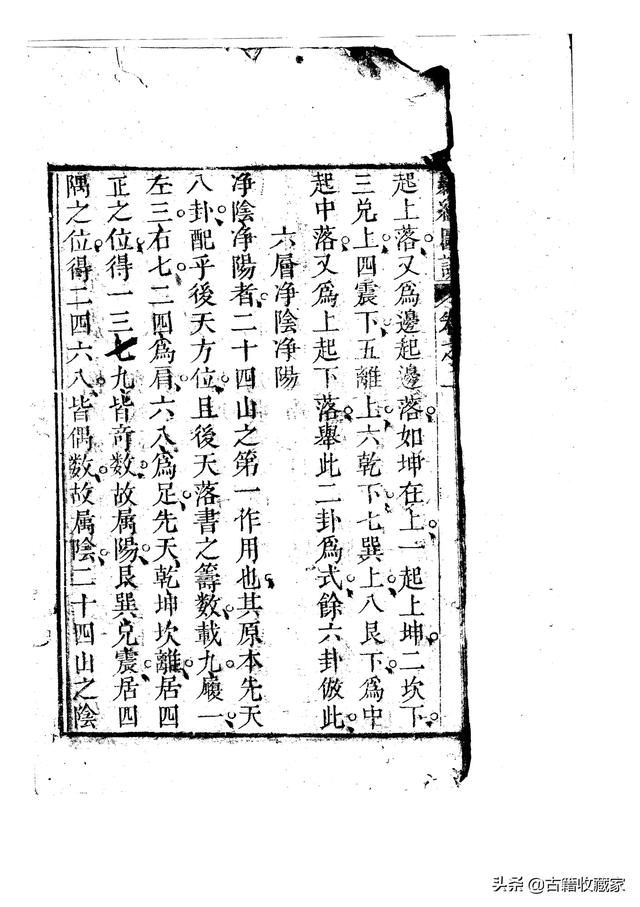 羅經圖說 卷之一
起上落又爲邊起邊落如坤在上一起上坤二坎下
三兑上四震下五離上六乾下七巽上八艮下爲中
起中落又爲上起下落舉此二卦爲式餘六卦倣此
六層净陰净陽
净陰净陽者二十四山之第一作用也其原本先天
八卦配乎後天方位且後天落書之籌数載九履一
左三右七二四爲肩六八爲足先天乾坤坎離居四
正之位得一三七九皆奇数故属陽艮巽兑震居四
隅之位得二四六八皆偶数故属陰二十四山之陰
头条 @古籍收藏家